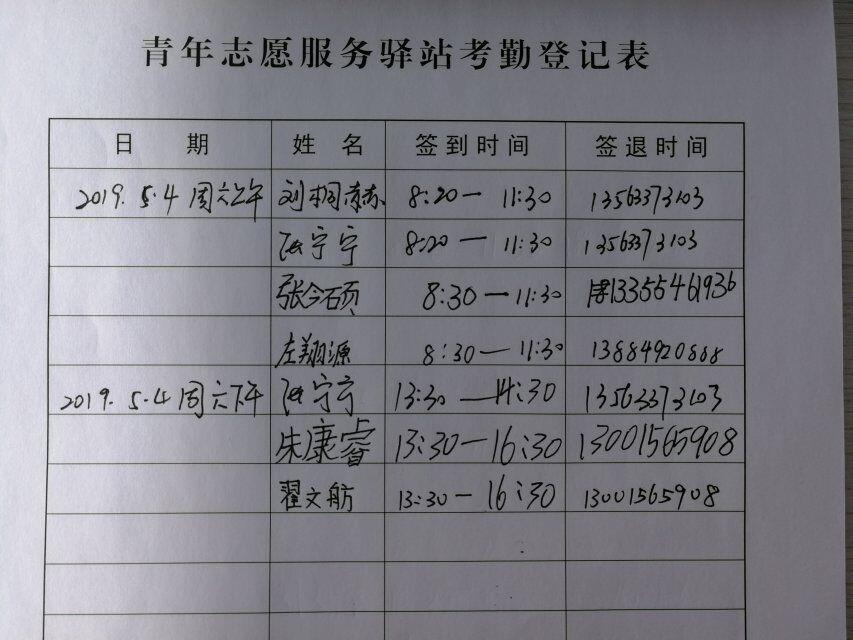 青年志愿服务驿站考勤登记表
日 期 姓 名 签到时间 签退时间
2019.5.4周六上午 刘桐赫 8:20—11:30 13563373103
张宁宁 8:20—11:30 13563373103
张今硕 8:30—11:30 13355461936
左翔源 8:30—11:30 13884920868
2019.5.4周六下午 张宁宁 13:30—14:30 13563373103
朱康睿 13:30—16:30 13001565908
翟文舫 13:30—16:30 13001565908